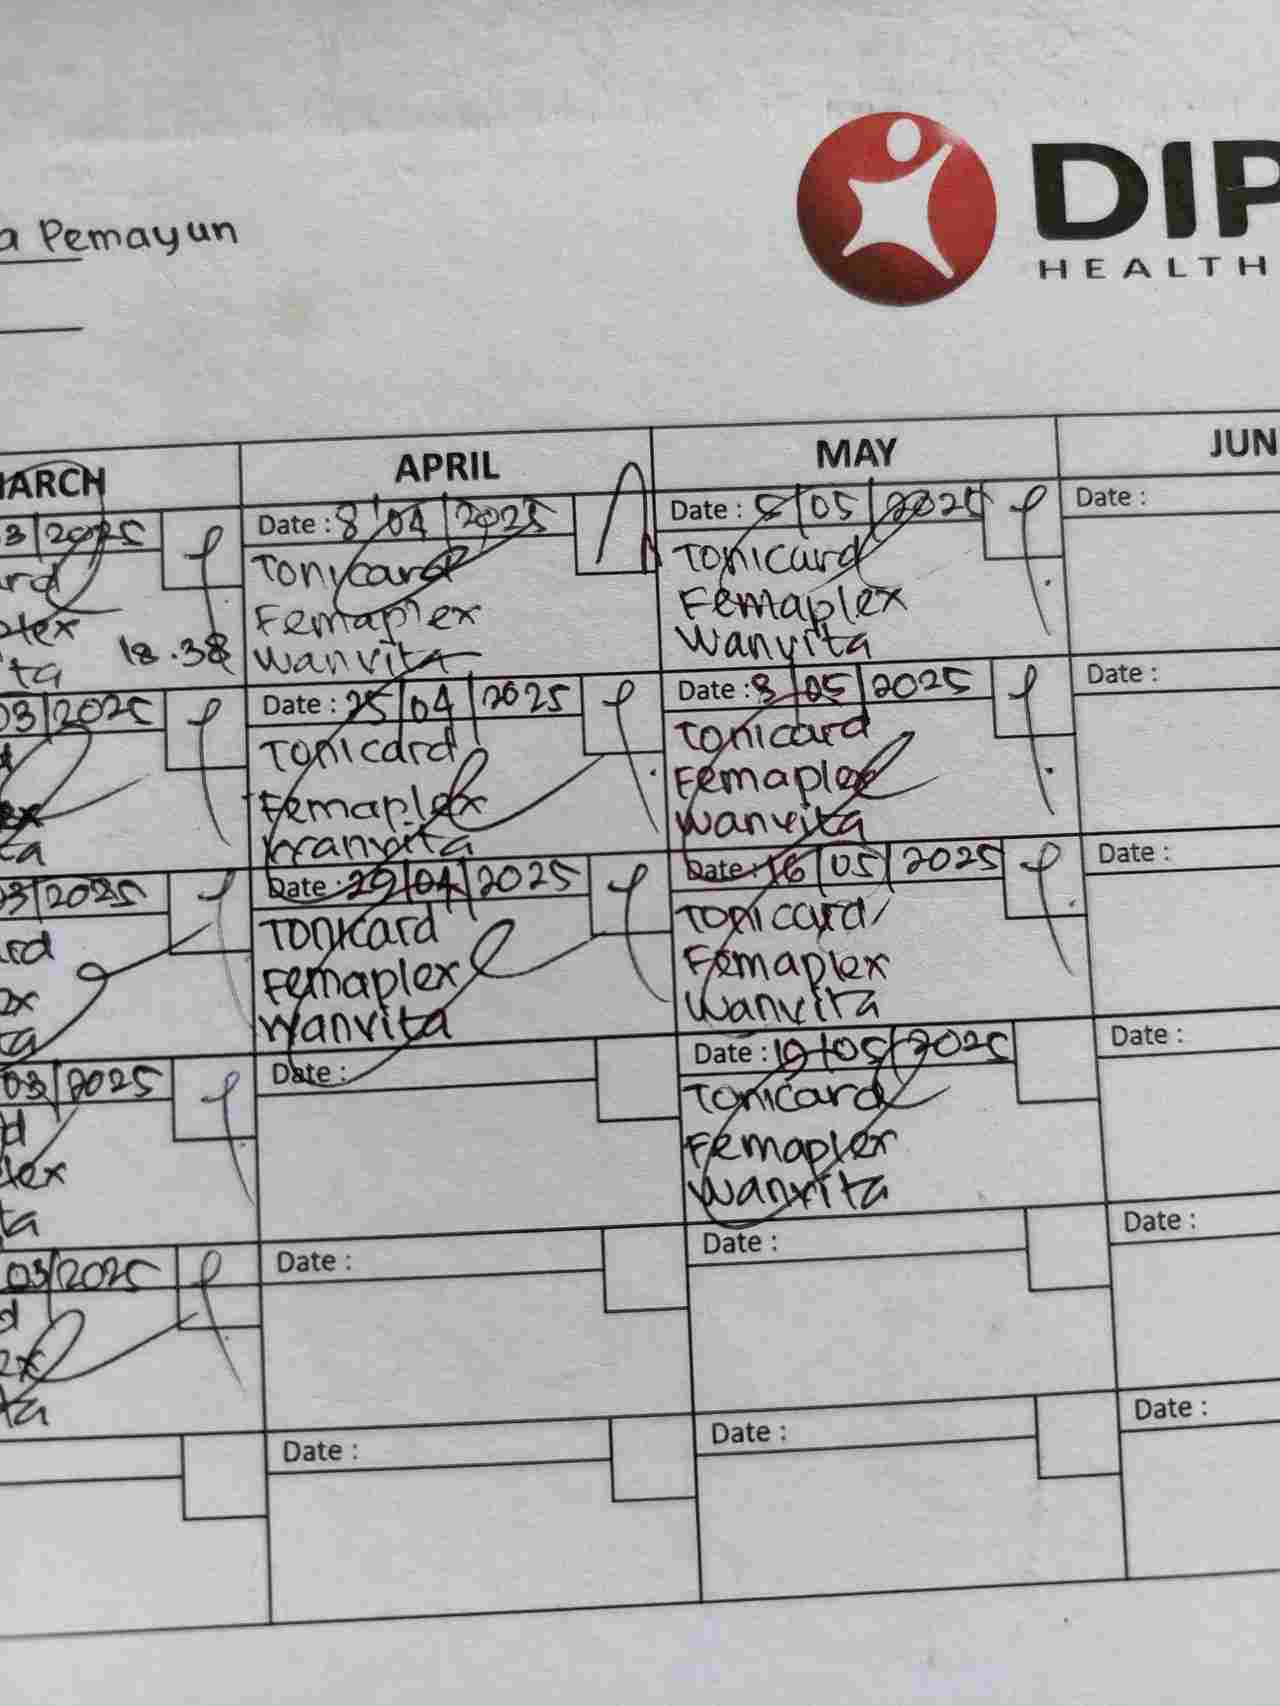 a Pemayun
DIP
HEALTH
MARCH
03/2025
18.38
03/2025
03/2025
03/2025
03/2025
APRIL
Date : 8/04/2025
Tonicard
Femaplex
Wanvita
Date : 25/04/2025
Tonicard
Femaplex
Wanvita
Date : 29/04/2025
Tonicard
Femaplex
Wanvita
Date :
Date :
Date :
MAY
Date : /05/2025
Tonicard
Femaplex
Wanvita
Date : 8/05/2025
Tonicard
Femaplex
Wanvita
Date : 16/05/2025
Tonicard
Femaplex
Wanvita
Date : 19/05/2025
Tonicard
Femaplex
Wanvita
Date :
Date :
JUN
Date :
Date :
Date :
Date :
Date :
Date :